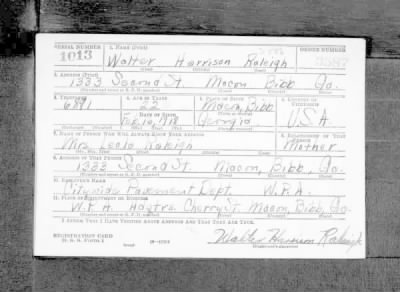 SERIAL NUMBER 1. NAME (Print) ORDER NUMBER
1013 Walter Harrison Raleigh
(First) (Middle) (Last)
2. ADDRESS (Print)
1333 Second St. Macon Bibb Ga.
3. TELEPHONE 4. AGE IN YEARS 5. PLACE OF BIRTH 6. COUNTRY OF CITIZENSHIP
6891 22 Macon, Bibb
DATE OF BIRTH
Feb. 10, 1918 Georgia U.S.A.
7. NAME OF PERSON WHO WILL ALWAYS KNOW YOUR ADDRESS 8. RELATIONSHIP OF THAT PERSON
Mrs. Leola Raleigh Mother
9. ADDRESS OF THAT PERSON
1333 Second St. Macon, Bibb, Ga.
10. EMPLOYER'S NAME
Citywide Pavement Dept. W.P.A.
11. PLACE OF EMPLOYMENT OR BUSINESS
W.P.A. Hdqtrs. Cherry St. Macon, Bibb, Ga.
I AFFIRM THAT I HAVE VERIFIED ABOVE ANSWERS AND THAT THEY ARE TRUE.
REGISTRATION CARD
D. S. S. FORM 1 Walter Harrison Raleigh
(Registrant's signature)